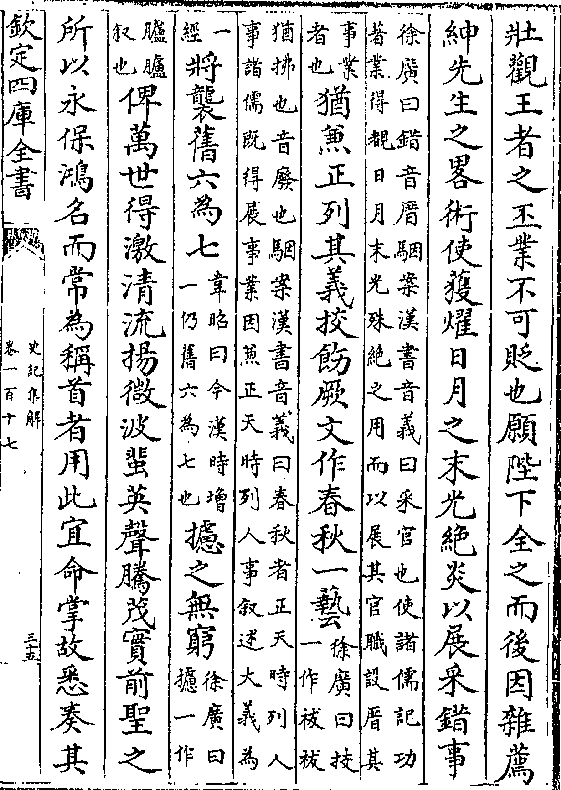 壯觀王者之丕業不可貶也願陛下全之而後因雜薦
紳先生之畧術使獲燿日月之末光絶炎以展采錯事
徐廣曰錯音厝駰案漢書音義曰采官也使諸儒記功
著業得覩日月末光殊絶之用而以展其官職設厝其
事業
者也
猶兼正列其義挍飭厥文作春秋一藝
徐廣曰挍
一作祓祓
猶拂也音廢也駰案漢書音義曰春秋者正天時列人
事諸儒既得展事業因兼正天時列人事叙述大義為
一
經
將襲舊六為七
韋昭曰今漢時增
一仍舊六為七也
攄之無窮
徐廣曰
攄一作
臚臚
叙也
俾萬世得激清流揚微波蜚英聲騰茂實前聖之
所以永保鴻名而常為稱首者用此宜命掌故悉奏其
欽定四庫全書
史記集解
卷一百十七
三十五